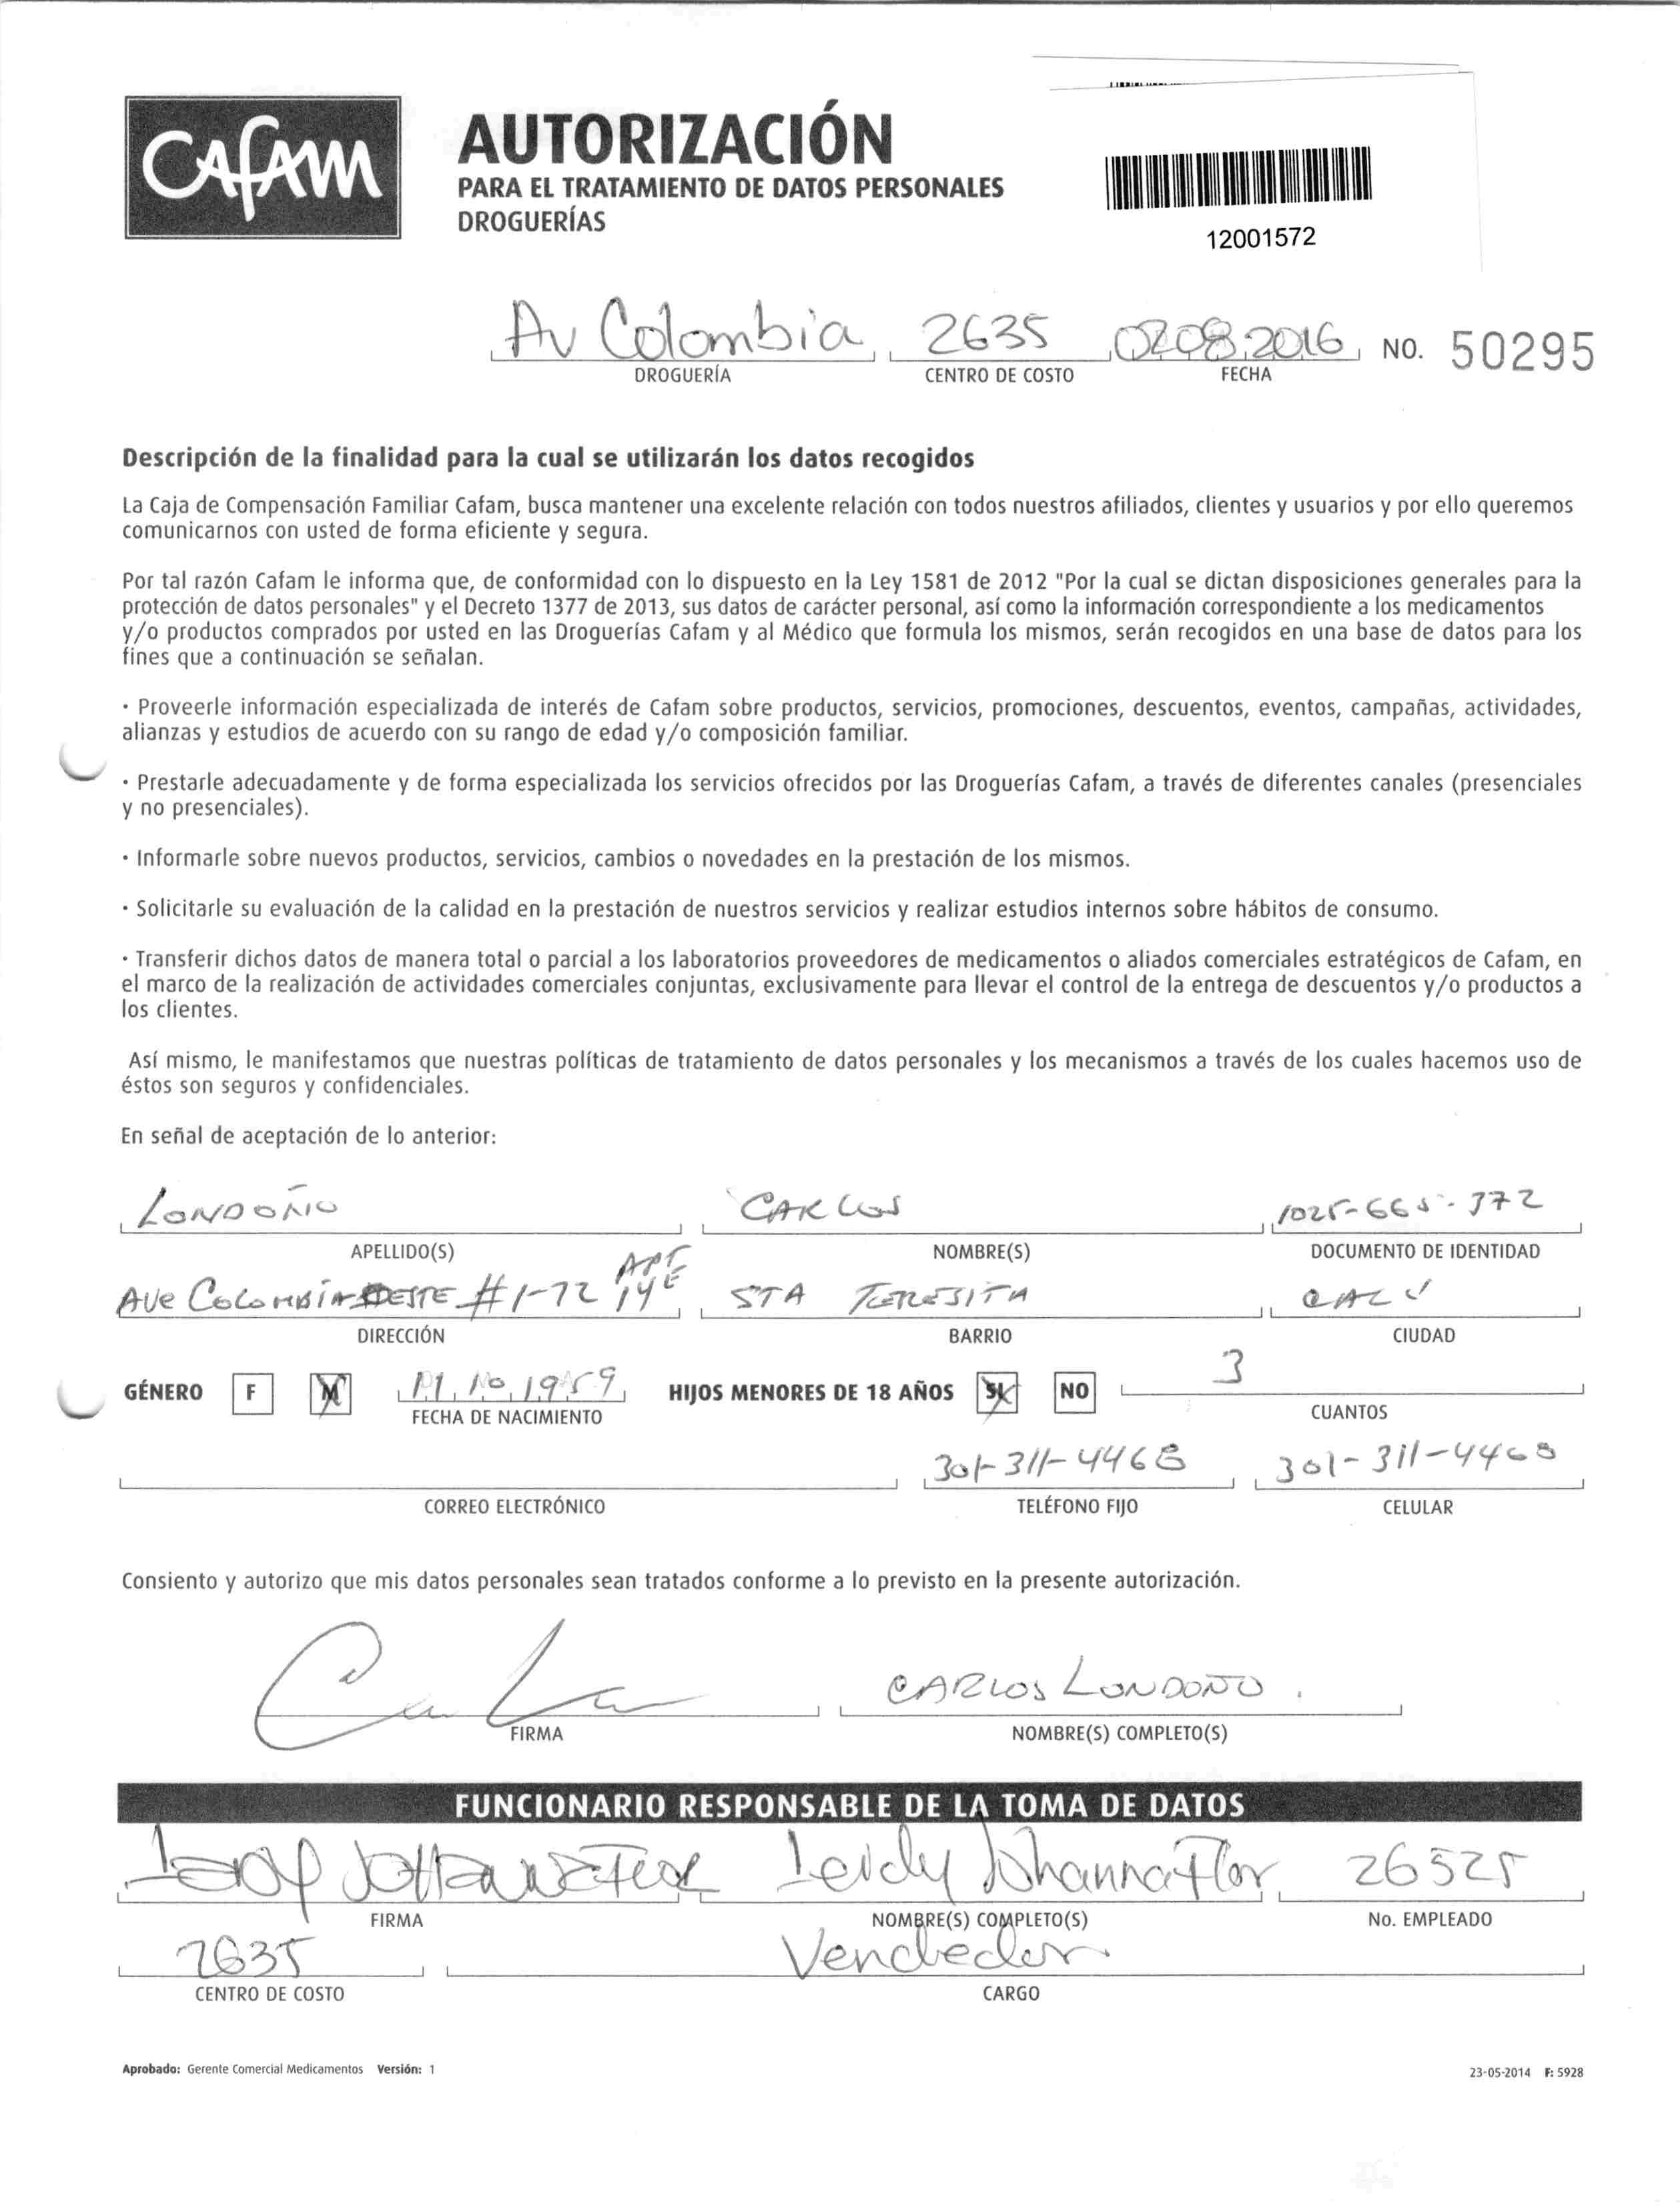 Cafam
AUTORIZACIÓN
PARA EL TRATAMIENTO DE DATOS PERSONALES
DROGUERÍAS
12001572
Av Colombia 2635 02 08 2016 NO. 50295
DROGUERÍA CENTRO DE COSTO FECHA
Descripción de la finalidad para la cual se utilizarán los datos recogidos
La Caja de Compensación Familiar Cafam, busca mantener una excelente relación con todos nuestros afiliados, clientes y usuarios y por ello queremos
comunicarnos con usted de forma eficiente y segura.
Por tal razón Cafam le informa que, de conformidad con lo dispuesto en la Ley 1581 de 2012 "Por la cual se dictan disposiciones generales para la
protección de datos personales" y el Decreto 1377 de 2013, sus datos de carácter personal, así como la información correspondiente a los medicamentos
y/o productos comprados por usted en las Droguerías Cafam y al Médico que formula los mismos, serán recogidos en una base de datos para los
fines que a continuación se señalan.
· Proveerle información especializada de interés de Cafam sobre productos, servicios, promociones, descuentos, eventos, campañas, actividades,
alianzas y estudios de acuerdo con su rango de edad y/o composición familiar.
· Prestarle adecuadamente y de forma especializada los servicios ofrecidos por las Droguerías Cafam, a través de diferentes canales (presenciales
y no presenciales).
· Informarle sobre nuevos productos, servicios, cambios o novedades en la prestación de los mismos.
· Solicitarle su evaluación de la calidad en la prestación de nuestros servicios y realizar estudios internos sobre hábitos de consumo.
· Transferir dichos datos de manera total o parcial a los laboratorios proveedores de medicamentos o aliados comerciales estratégicos de Cafam, en
el marco de la realización de actividades comerciales conjuntas, exclusivamente para llevar el control de la entrega de descuentos y/o productos a
los clientes.
Así mismo, le manifestamos que nuestras políticas de tratamiento de datos personales y los mecanismos a través de los cuales hacemos uso de
éstos son seguros y confidenciales.
En señal de aceptación de lo anterior:
LONDOÑO CARLOS 1025-665-372
APELLIDO(S) NOMBRE(S) DOCUMENTO DE IDENTIDAD
AVE COLOMBIA OESTE #1-72 APT 14E STA TERESITA CALI
DIRECCIÓN BARRIO CIUDAD
GÉNERO F M 1959 HIJOS MENORES DE 18 AÑOS SI NO 3
FECHA DE NACIMIENTO CUANTOS
301-311-4468 301-311-4468
CORREO ELECTRÓNICO TELÉFONO FIJO CELULAR
Consiento y autorizo que mis datos personales sean tratados conforme a lo previsto en la presente autorización.
CARLOS LONDOÑO.
FIRMA NOMBRE(S) COMPLETO(S)
FUNCIONARIO RESPONSABLE DE LA TOMA DE DATOS
Leidy Johanna Flor 26525
FIRMA NOMBRE(S) COMPLETO(S) No. EMPLEADO
2635 Vendedor
CENTRO DE COSTO CARGO
Aprobado: Gerente Comercial Medicamentos Versión: 1 23-05-2014 F: 5928